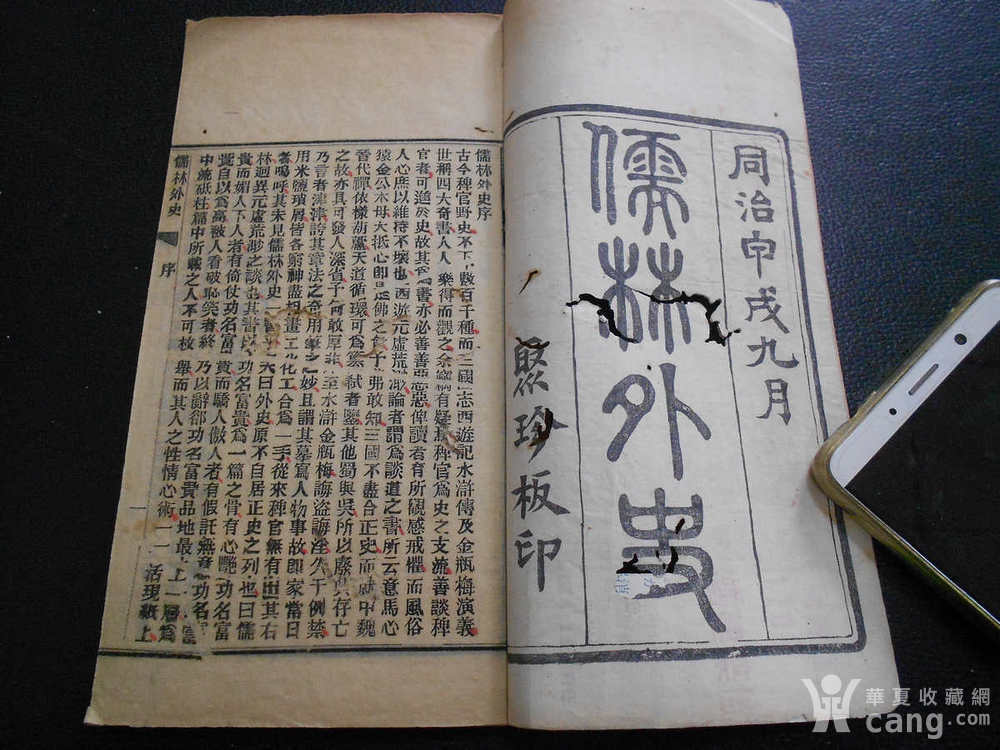 同治甲戌九月
儒林外史
聚珍板印
儒林外史序
古今稗官野史不下數百千種而三國志西遊記水滸傳及金瓶梅演義
世稱四大奇書人人樂得而觀之余竊有疑焉稗官爲史之支流善談稗
官者可進於史故其爲書亦必善善惡惡俾讀者有所觀感戒懼而風俗
人心庶以維持不壞也西遊元虛荒渺論者謂爲談道之書所云意馬心
猿金公木母大抵心即是佛之旨予弗敢知三國不盡合正史而就中魏
晉代禪依樣葫蘆天道循環可爲篡弒者鑒其他蜀與吳所以廢興存亡
之故亦具可發人深省予何敢厚非至水滸金瓶梅誨盜誨淫久干例禁
乃言者津津誇其章法之奇用筆之妙且謂其摹寫人物事故即家常日
用米鹽瑣屑皆各窮神盡相畫工化工合爲一手從來稗官無有出其右
者嗚呼其未見儒林外史一書乎夫曰外史原不自居正史之列也曰儒
林迥異元虛荒渺之談也其書以功名富貴爲一篇之骨有心艷功名富
貴而媚人下人者有倚仗功名富貴而驕人傲人者有假託無意功名富
貴自以爲高被人看破恥笑者終乃以辭卻功名富貴品地最上一層爲
中流砥柱篇中所載之人不可枚舉而其人之性情心術一一活現紙上
儒林外史 序 一
華夏收藏網
cang.com